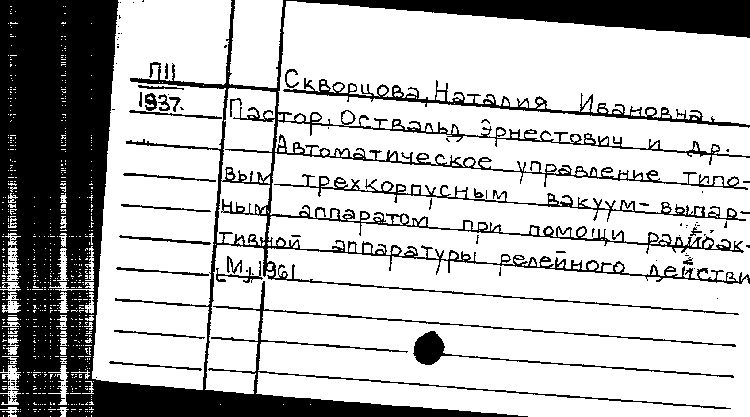 П11
1937.
Скворцова, Наталия Ивановна.
Пастор, Освальд Эрнестович и др.
Автоматическое управление типо-
вым трехкорпусным вакуум-выпар-
ным аппаратом при помощи радиоак-
тивной аппаратуры релейного действи
[М.], 1961.